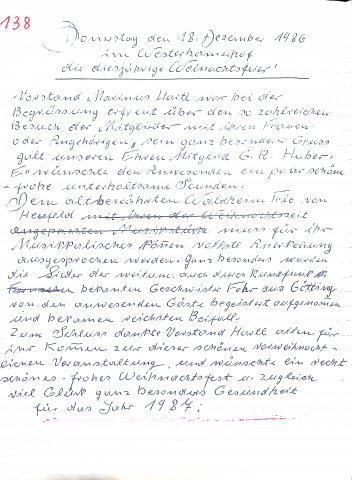 138
Donnerstag den 18. Dezember 1986
im Westerhamerhof
die diesjährige Weihnachtsfeier!
Vorstand Marinus Hartl war bei der
Begrüssung erfreut über den so zahlreichen
Besuch der Mitglieder mit ihren Frauen
oder Angehörigen, sein ganz besonderer Gruss
galt unseren Ehren Mitglied G. R. Huber.
Er wünschte den Anwesenden ein paar schöne
- frohe unterhaltsame Stunden.
Dem altbewährten Waldheim Trio von
Heufeld mit ihren der Weihnachtszeit
angepassten Musikstücke muss für ihr
Musikkalisches können vollste Anerkennung
ausgesprochen werden. Ganz besonders wurden
die Lieder der weitum auch durch Rundfunk u.
Fernsehen bekannten Geschwister Fohr aus Götting
von den anwesenden Gäste begeistert aufgenommen
und bekamen reichsten Beifall.
Zum Schluss dankte Vorstand Hartl allen für
ihr Komen zur dieser schönen vorweihnacht-
lichen Veranstaltung, und wünschte ein recht
schönes - frohes Weihnachtsfest u. zugleich
viel Glück ganz besonders Gesundheit
für das Jahr 1987!